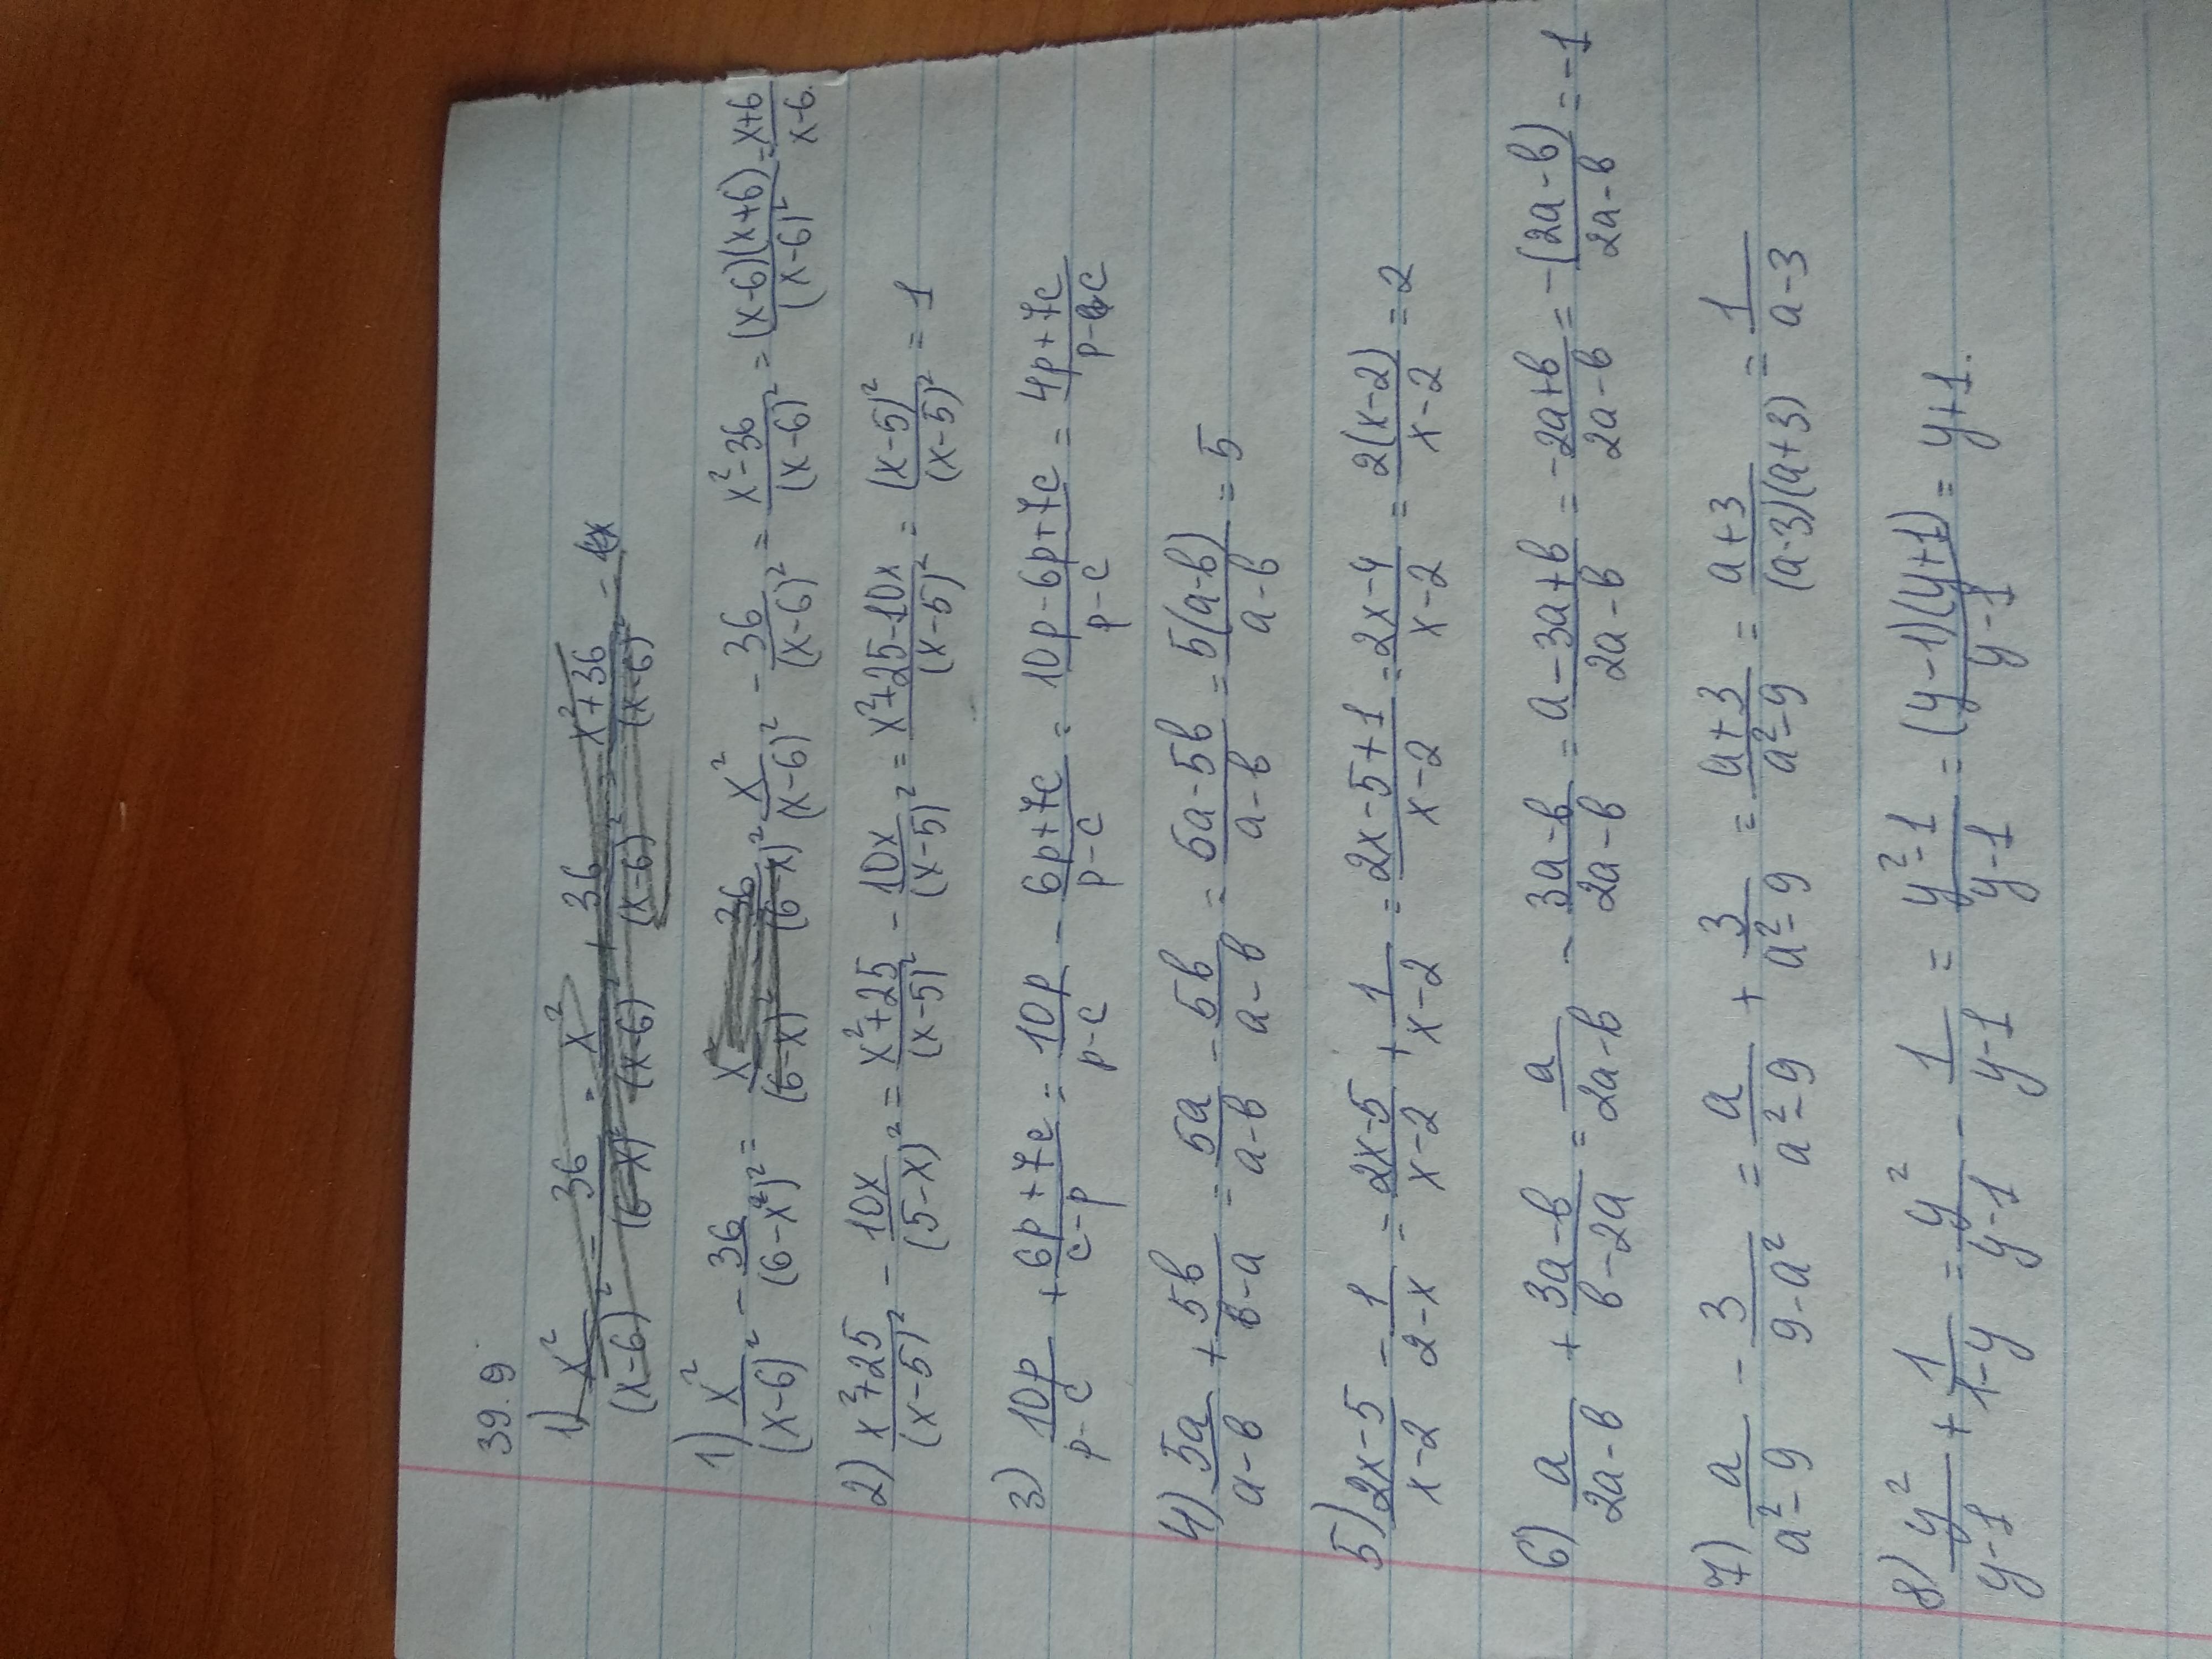 39.9
1) x²/(x-6)² - 36/(6-x)² = x²/(x-6)² + 36/(x-6)² = x²+36/(x-6)² =
1) x²/(x-6)² - 36/(6-x²)² = x 36/(6-x)² (6-x)² x²/(x-6)² - 36/(x-6)² = x²-36/(x-6)² = (x-6)(x+6)/(x-6)² = x+6/x-6.
2) x²+25/(x-5)² - 10x/(5-x)² = x²+25/(x-5)² - 10x/(x-5)² = x²+25-10x/(x-5)² = (x-5)²/(x-5)² = 1
3) 10p/p-c + 6p+7c/c-p = 10p/p-c - 6p+7c/p-c = 10p-6p+7c/p-c = 4p+7c/p-c
4) 5a/a-b + 5b/b-a = 5a/a-b - 5b/a-b = 5a-5b/a-b = 5(a-b)/a-b = 5
5) 2x-5/x-2 - 1/2-x = 2x-5/x-2 + 1/x-2 = 2x-5+1/x-2 = 2x-4/x-2 = 2(x-2)/x-2 = 2
6) a/2a-b + 3a-b/b-2a = a/2a-b - 3a-b/2a-b = a-3a+b/2a-b = -2a+b/2a-b = -(2a-b)/2a-b = -1
7) a/a²-9 - 3/9-a² = a/a²-9 + 3/a²-9 = a+3/a²-9 = a+3/(a-3)(a+3) = 1/a-3
8) y²/y-1 + 1/1-y = y²/y-1 - 1/y-1 = y²-1/y-1 = (y-1)(y+1)/y-1 = y+1.